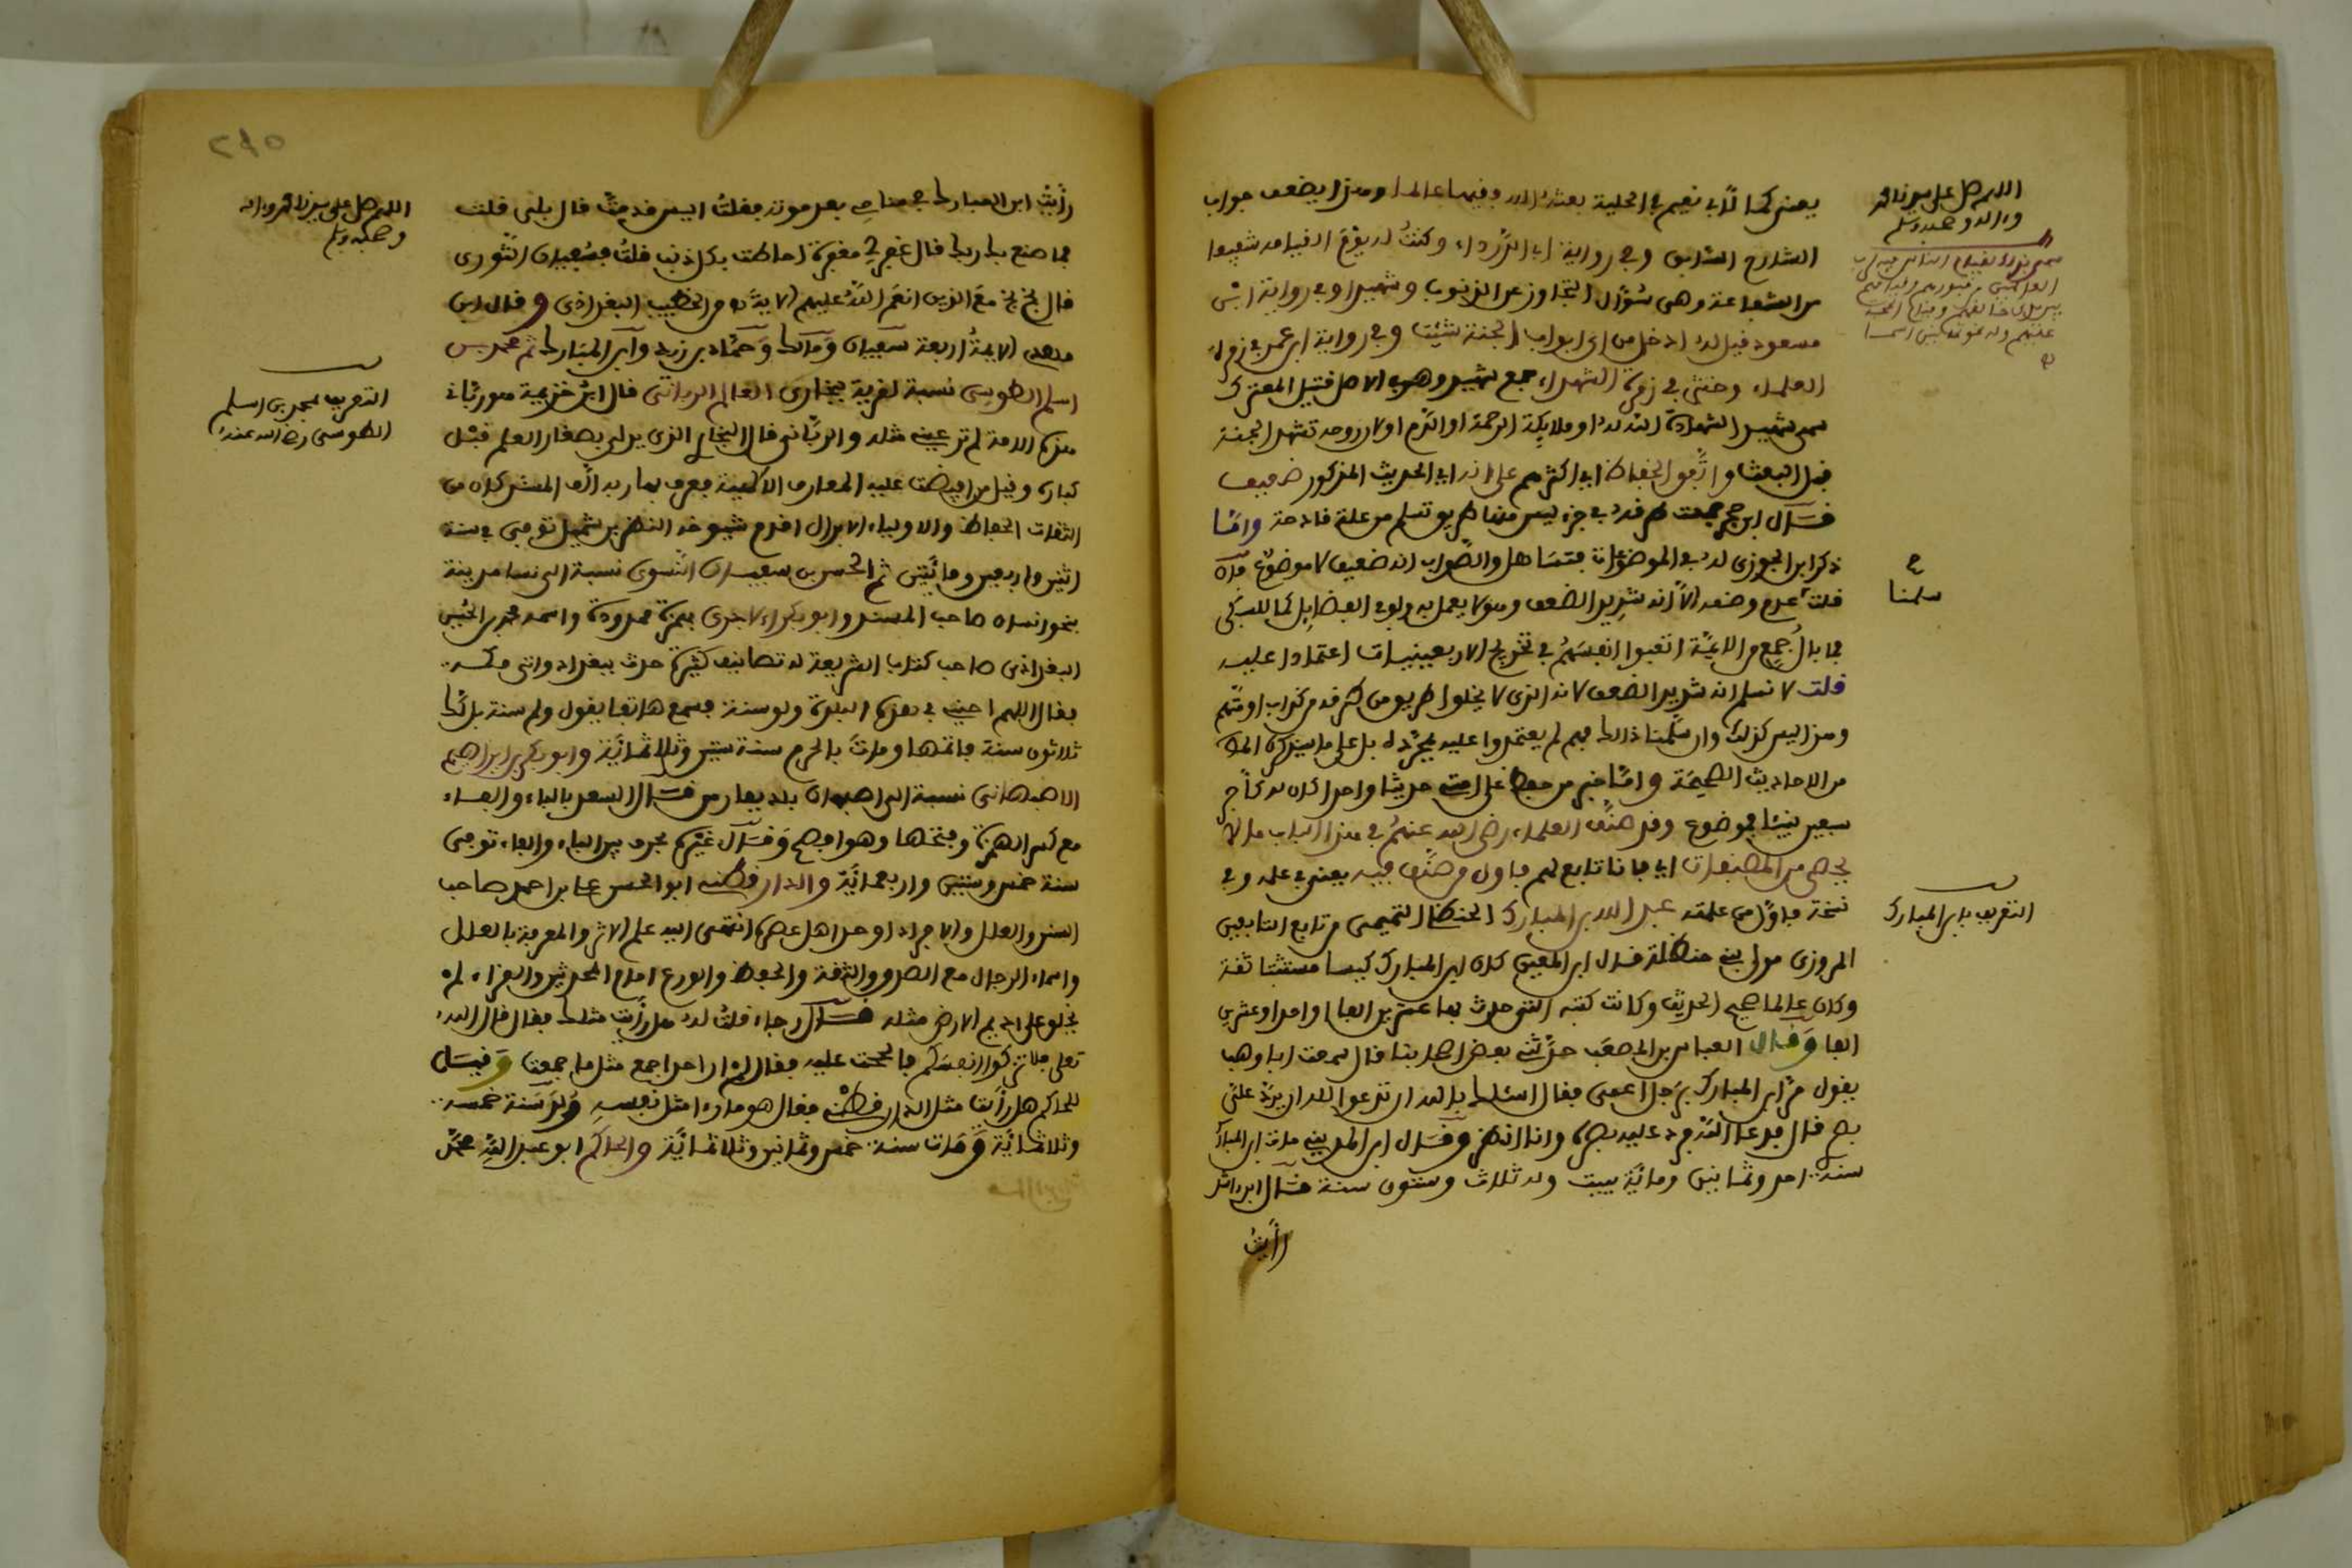 يعني كما لأبي نعيم في الحلية بعثه الله وفيها عالما ومنزا يضعف جواب
الشارح السادس وفي رواية أبي الدرداء وكنت له يوم القيامة شفيعا
من الشفاعة وهي سؤال التجاوز عن الذنوب وشهيدا وفي رواية ابن
مسعود قيل له ادخل من أي أبواب الجنة شئت وفي رواية ابن عمر في زمرة
العلماء وحشر في زمرة الشهداء جمع شهيد وهو في الأصل قتيل المعترك
سمي شهيدا لشهادة الله له أو ملائكة الرحمة أو الدم أو لأن روحه تشهد الجنة
قبل البعث واتفق الحفاظ أي أكثرهم على أنه أي الحديث المذكور ضعيف
قال ابن حجر جمعت طرقه في جزء ليس منها طريق تسلم من علة قادحة وأما
ذكر ابن الجوزي له في الموضوعات فتساهل والصواب أنه ضعيف لا موضوع فإن
قلت عدم وضعه إلا أنه شديد الضعف وهو لا يعمل به ولو في الفضائل كما للسبكي
فما بال جمع من الأئمة أتعبوا أنفسهم في تخريج الأربعينيات اعتمادا عليه
قلت لا نسلم أنه شديد الضعف لأنه الذي لا يخلوا طريق من طرقه من كذاب أو متهم
وهذا ليس كذلك وإن سلمنا ذلك فهم لم يعتمدوا عليه بمجرده بل على ما سيذكره المؤلف
من الأحاديث الصحيحة وأما خبر من حفظ على أمتي حديثا واحدا كان له كأجر
سبعين نبيئا فموضوع وقد صنف العلماء رضي الله عنهم في هذا الباب ما لا
يحصى من المصنفات أي فأنا تابع لهم فأول من صنف فيه يعني في علمه وفي
نسخة فأول من علمته عبد الله بن المبارك الحنظلي التميمي من تابع التابعين
المروزي مولى بني حنظلة قال ابن المعين كان ابن المبارك كيسا مستثبتا ثقة
وكان عالما صحيح الحديث وكانت كتبه التي حدث بها عشرين ألفا أو احدا وعشرين
ألفا وقال العباس بن المصعب حدثني بعض أصحابنا قال سمعت أبا وهب
يقول مر ابن المبارك برجل أعمى فقال أسئلك بالله أن تدعوا الله أن يرد علي
بصري قال فدعا الله فرد عليه بصره وأنا أنظر وقال ابن المديني مات ابن المبارك
سنة احد وثمانين ومائة ببيت وله ثلاث وستون سنة قال ابن راشد
رأيت
اللهم صل على سيدنا محمد
وءاله وصحبه وسلم
سلمنا
التعريف بابن المبارك
رأيت ابن المبارك في منامي بعد موته فقلت أليس قد مت قال بلى قلت
فما صنع بك ربك قال غفر لي مغفرة أحاطت بكل ذنب قلت فسفيان الثوري
قال بخ بخ مع الذين أنعم الله عليهم الآية من الخطيب البغدادي وقال ابن
مهدي الأئمة أربعة سفيان ومالك وحماد بن زيد وابن المبارك ثم محمد بن
أسلم الطوسي نسبة لقرية ببخارى العالم الرباني قال ابن خزيمة هو رباني
هذه الأمة لم تر عيني مثله والرباني قال البخاري الذي يربي بصغار العلم قبل
كباره وقيل من أفيضت عليه المعارف الإلهية فعرف بها ربه أحد المشركين من
الثقات الحفاظ والأولياء الأبدال أقدم شيوخه النضر بن شميل توفي في سنة
اثنين وأربعين ومائتين ثم الحسن بن سفيان النسوي نسبة إلى نسا مدينة
بنحو نساء صاحب المسند وأبو بكر الآجري بهمزة ممدودة واسمه محمد بن الحسين
البغدادي صاحب كتاب الشريعة له تصانيف كثيرة حدث ببغداد وأتى مكة
فقال اللهم أحيني في هذه البلدة ولو سنة فسمع هاتفا يقول ولم سنة بل لك
ثلاثون سنة فأتمها ومات بالحرم سنة ستين وثلاثمائة وأبو بكر بن إبراهيم
الأصبهاني نسبة إلى أصبهان بلد بفارس قال السعد بالباء والفاء
مع كسر الهمزة وفتحها وهو أفصح وقال غيره بحرف بين الباء والفاء توفي
سنة خمس وستين وأربعمائة والدارقطني أبو الحسن علي بن أحمد صاحب
السنن والعلل والأفراد أوحد أهل عصره انتهى إليه علم الأثر والمعرفة بالعلل
وأسماء الرجال مع الصدق والثقة والحفظ والورع إمام المحدثين والقراء لم
يخلق على أديم الأرض مثله قال رجاء قلت له هل رأيت مثلك فقال قال الله
تعلى فلا تزكوا أنفسكم فألححت عليه فقال لم أر أحدا جمع مثل ما جمعت وقيل
للحاكم هل رأيت مثل الدارقطني فقال هو ما رءا مثل نفسه ولد سنة خمسة
وثلاثمائة ومات سنة خمس وثمانين وثلاثمائة والحاكم أبو عبد الله محمد
اللهم صل على سيدنا محمد وءاله
وصحبه وسلم
التعريف بمحمد بن أسلم
الطوسي رضي الله عنه